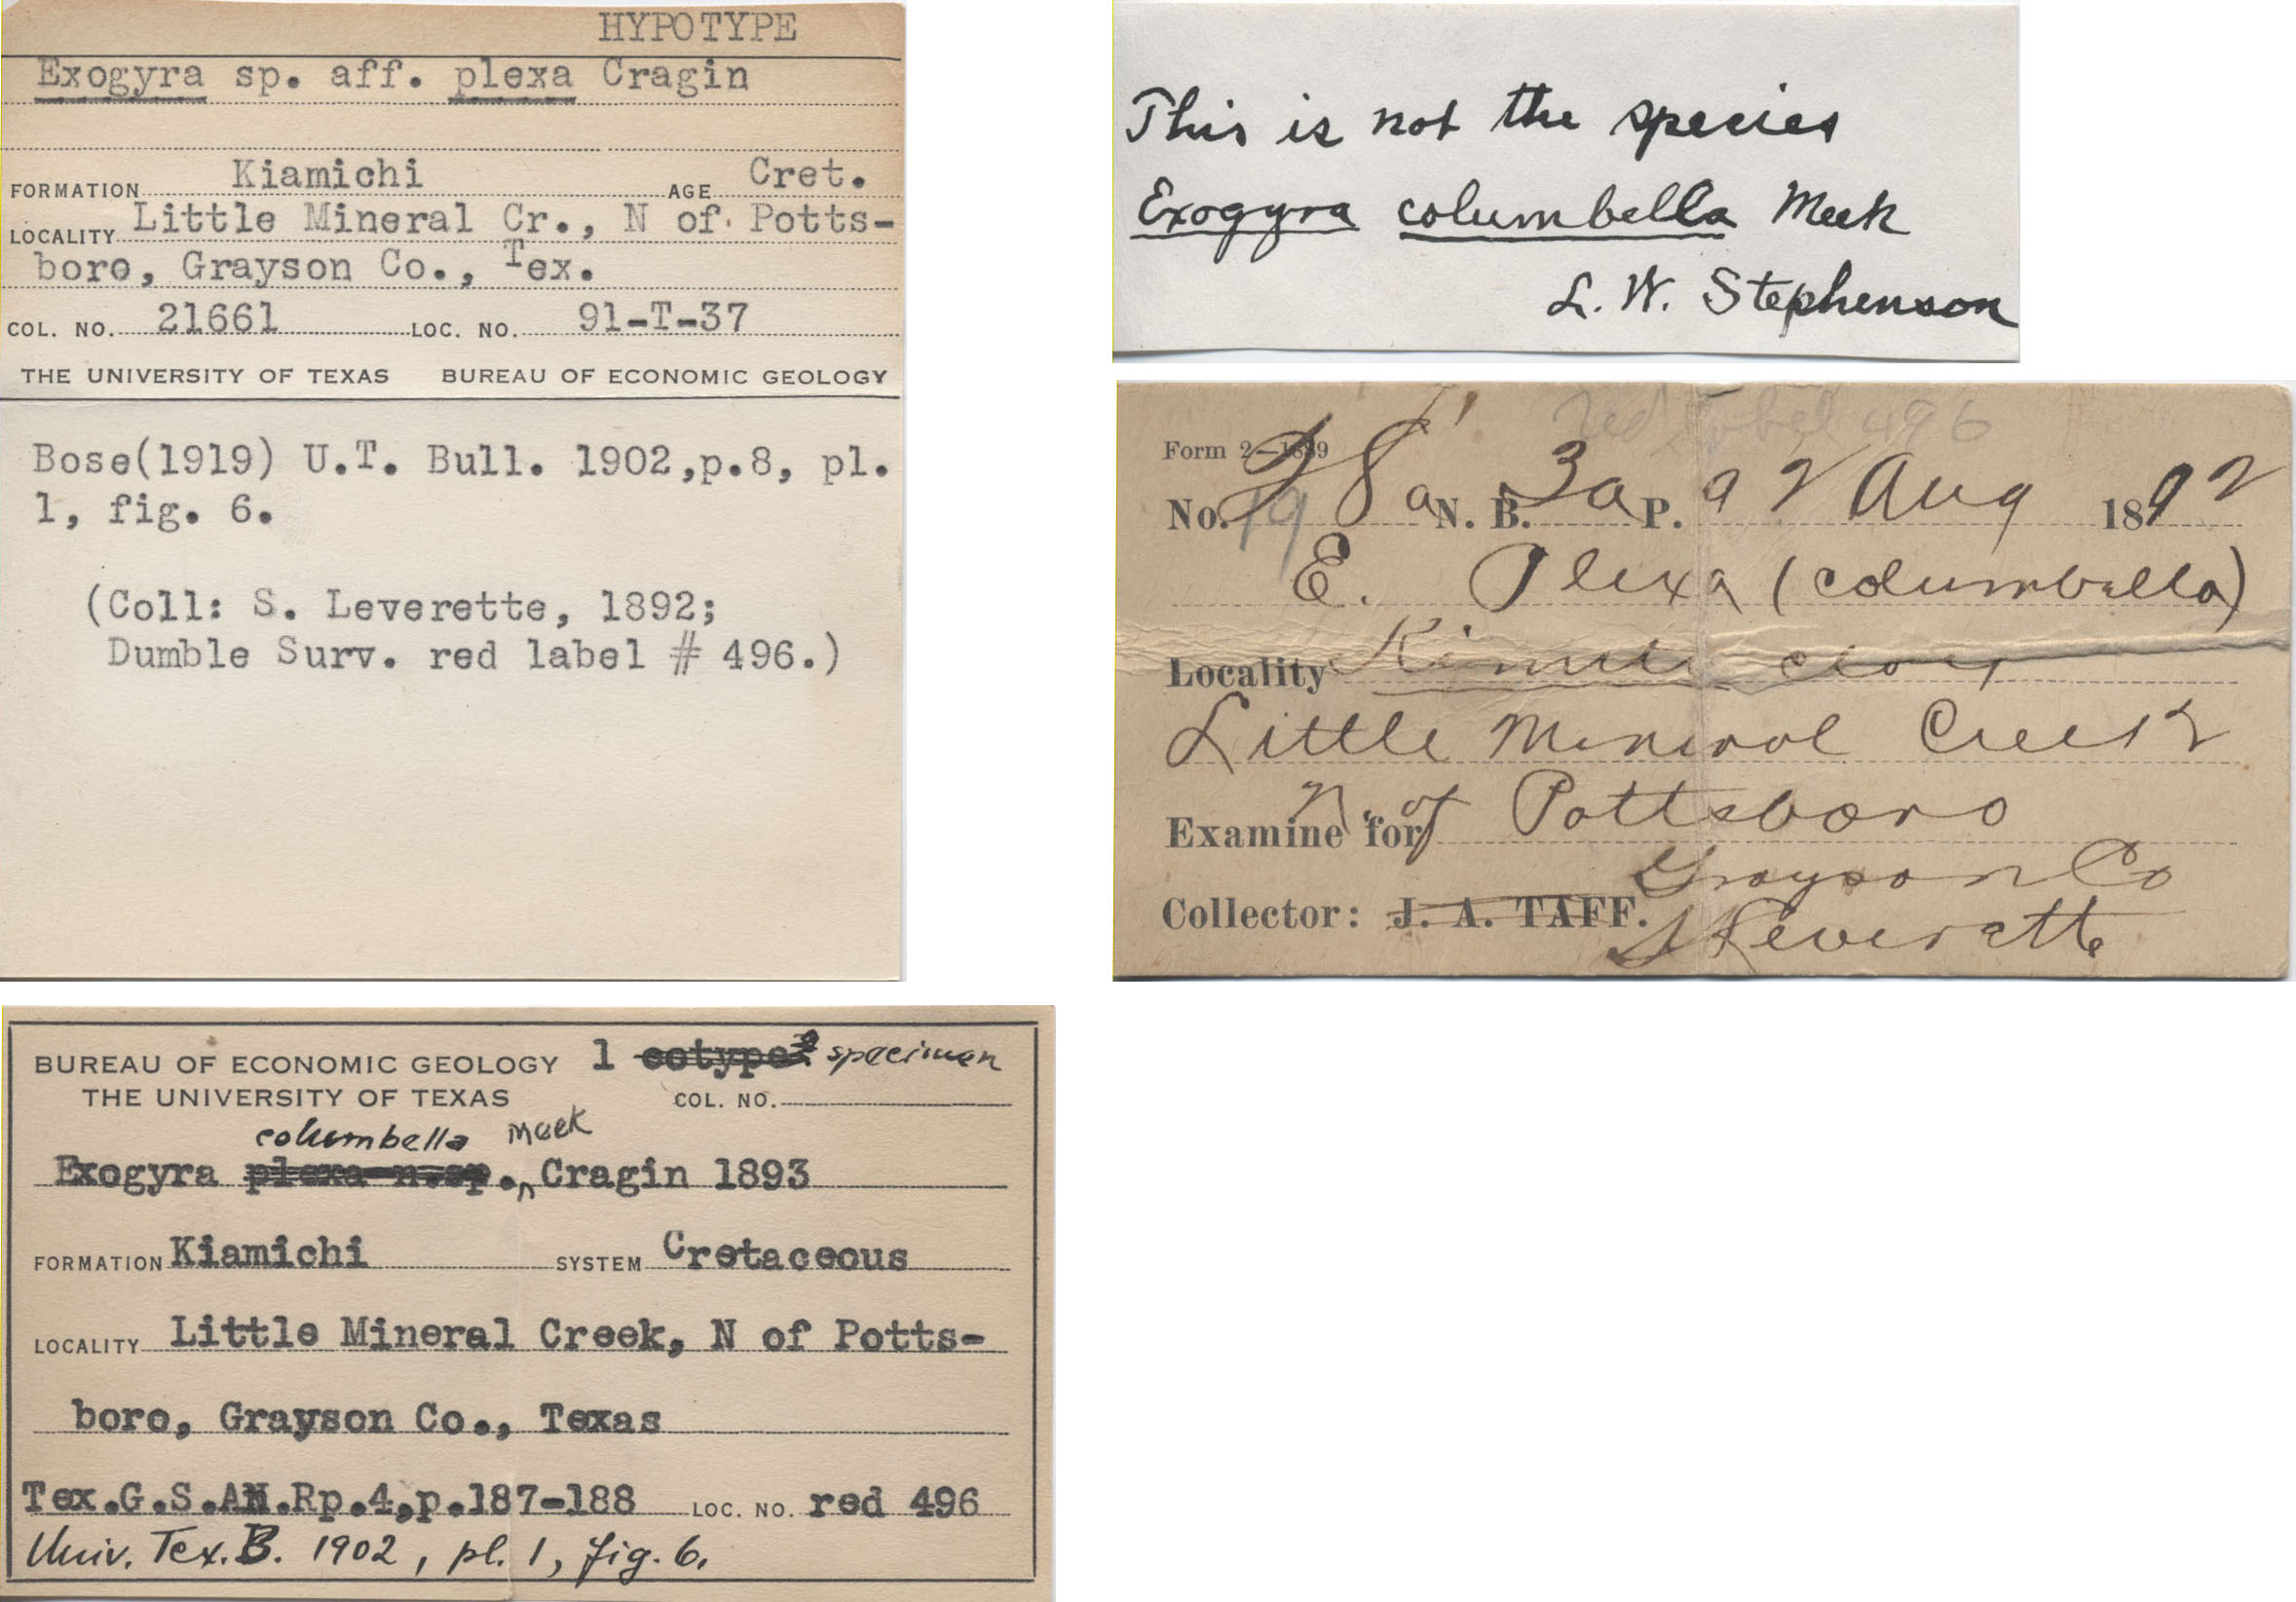 HYPOTYPE
Exogyra sp. aff. plexa Cragin
FORMATION Kiamichi AGE Cret.
LOCALITY Little Mineral Cr., N of Potts-
boro, Grayson Co., Tex.
COL. NO. 21661 LOC. NO. 91-T-37
THE UNIVERSITY OF TEXAS BUREAU OF ECONOMIC GEOLOGY
Bose(1919) U.T. Bull. 1902,p.8, pl.
1, fig. 6.
(Coll: S. Leverette, 1892;
Dumble Surv. red label # 496.)
This is not the species
Exogyra columbella Meek
L. W. Stephenson
red label 496
Form 2—1889
No. 28 a N. B. 3a P. 9 2 Aug 1892
E. Plexa (columbella)
Locality clay
Little Mineral Creek
N. of Pottsboro
Examine for
Grayson Co
Collector: J. A. TAFF.
S Leverette
BUREAU OF ECONOMIC GEOLOGY 1 cotype specimen
THE UNIVERSITY OF TEXAS COL. NO.
columbella Meek
Exogyra plexa n.sp., Cragin 1893
FORMATION Kiamichi SYSTEM Cretaceous
LOCALITY Little Mineral Creek, N of Potts-
boro, Grayson Co., Texas
Tex.G.S.AN.Rp.4,p.187-188 LOC. NO. red 496
Univ. Tex. B. 1902, pl. 1, fig. 6.